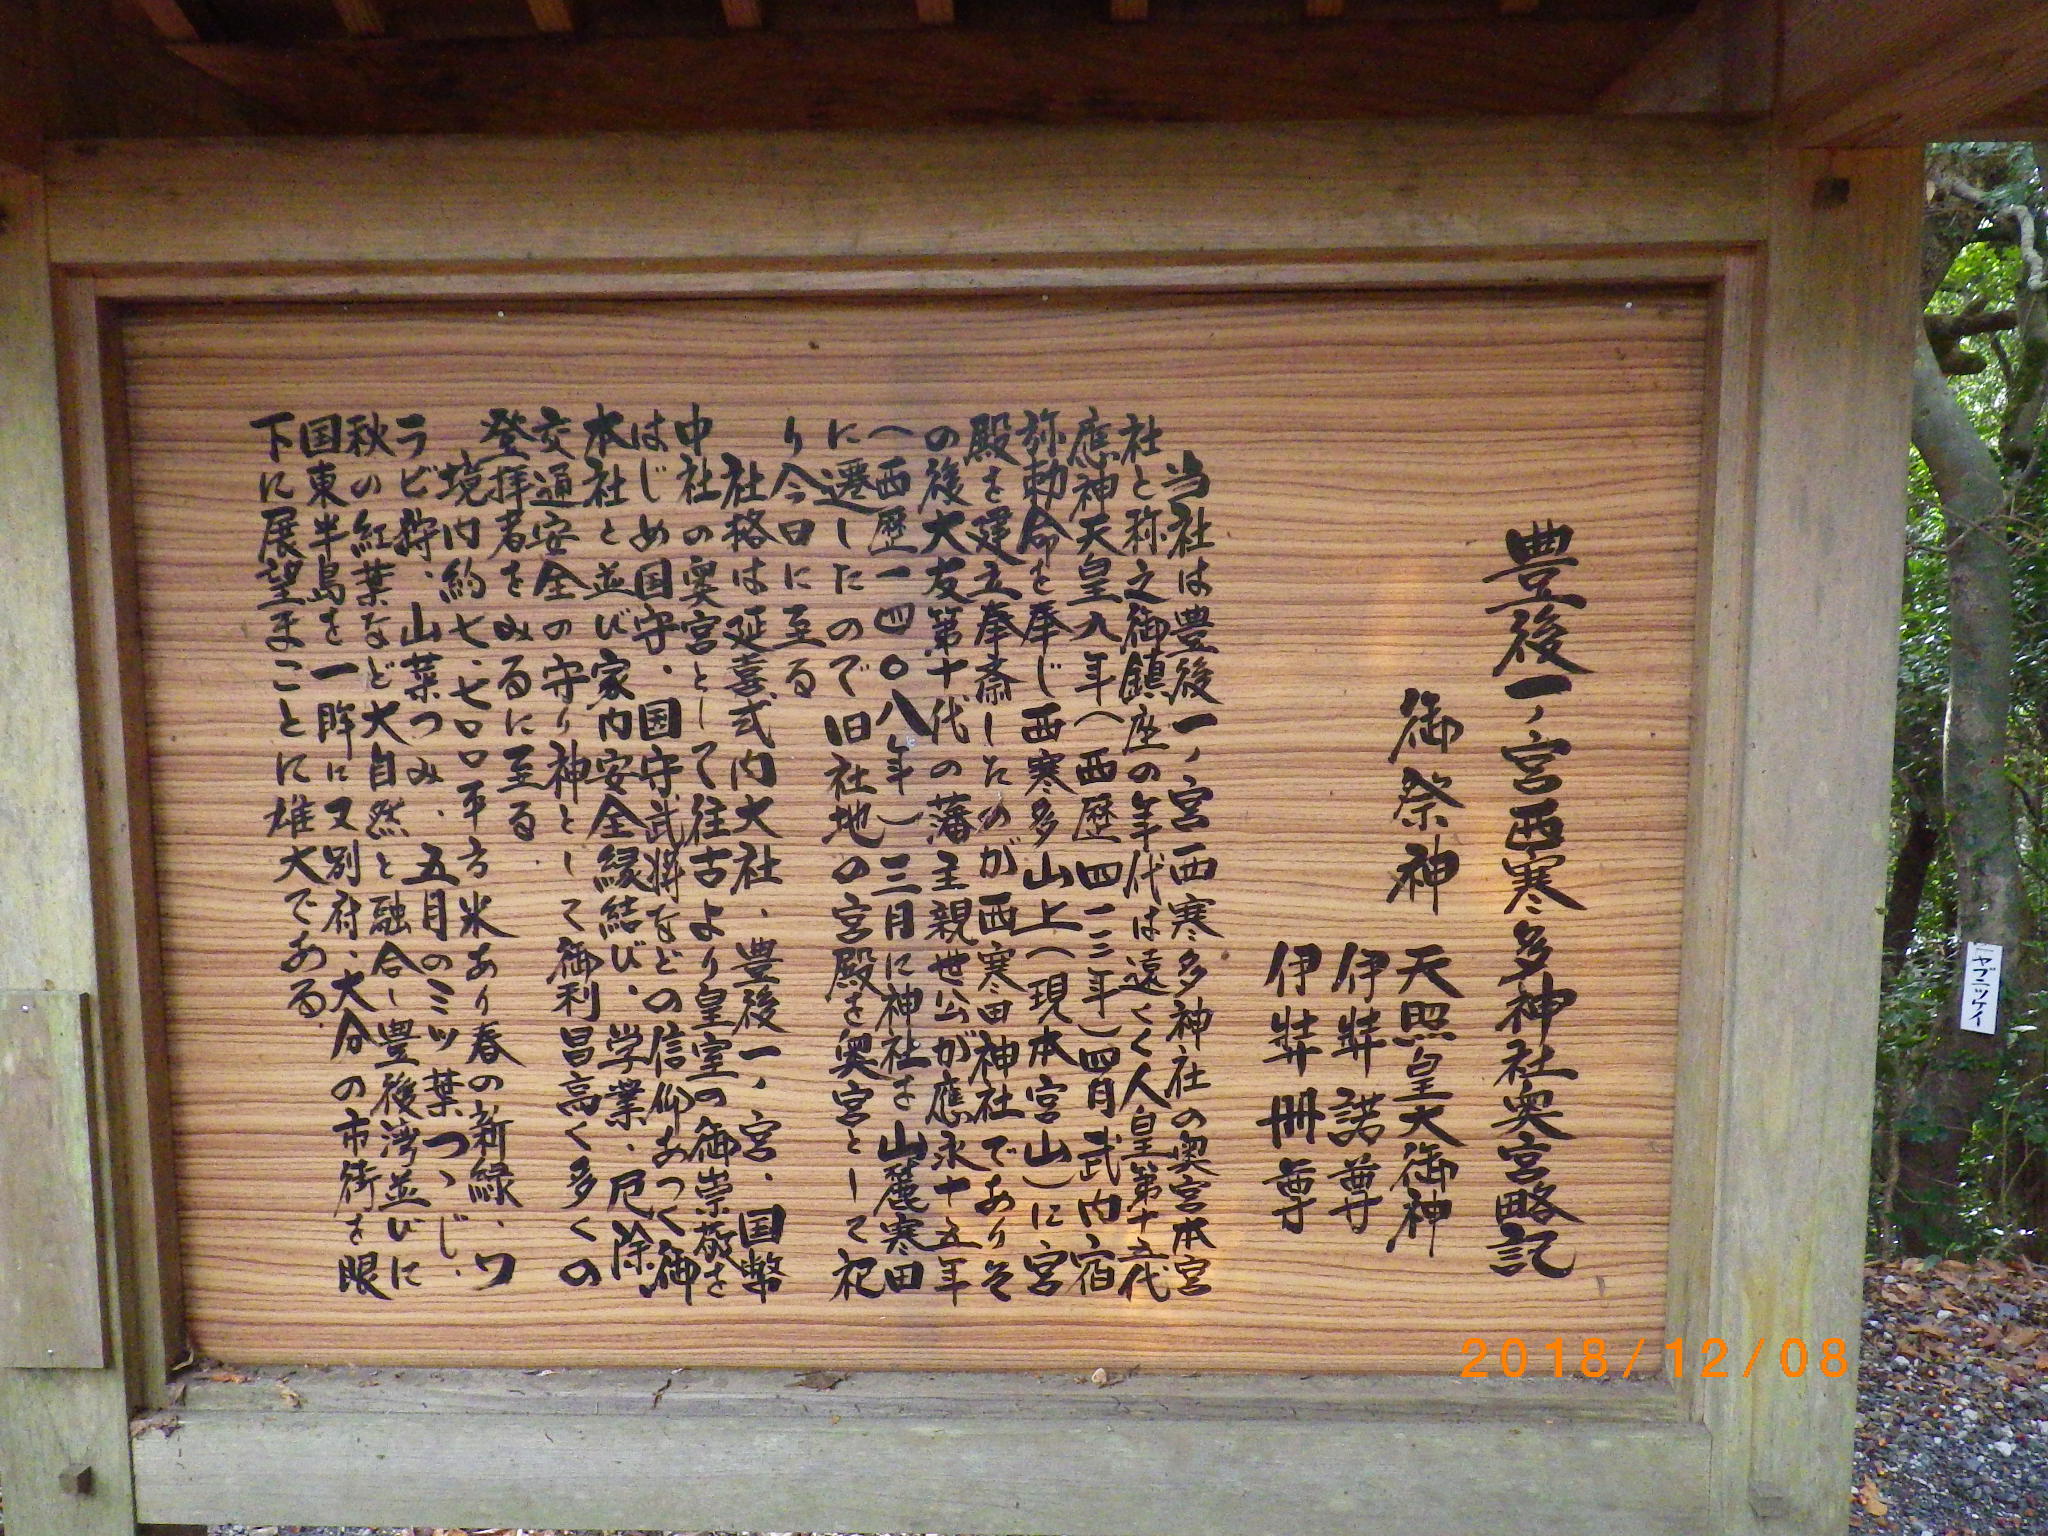 豊後一ノ宮西寒多神社奥宮略記
御祭神
天照皇大御神
伊弉諾尊
伊弉冊尊
当社は豊後一ノ宮西寒多神社の奥宮本宮
社と称之御鎮座の年代は遠く人皇第十五代
應神天皇九年(西歴四一三年)四月武内宿
弥勅命を奉じ西寒多山上(現本宮山)に宮
殿を建立奉斎したのが西寒田神社でありそ
の後大友第十代の藩主親世公が應永十五年
(西歴一四〇八年)三月に神社を山麓寒田
に遷したので旧社地の宮殿を奥宮として祀
り今日に至る
社格は延喜式内大社、豊後一ノ宮、国幣
中社の奥宮として往古より皇室の御崇敬を
はじめ国守、国守武将などの信仰あつく御
本社と並び家内安全縁結び、学業、厄除、
交通安全の守り神として御利昌高く多くの
登拝者をみるに至る
境内約七、七〇〇平方米あり春の新緑、ワ
ラビ狩、山菜つみ、五月のミツ葉つゝじ、
秋の紅葉など大自然と融合し豊後湾並びに
国東半島を一眸に又別府、大分の市街を眼
下に展望まことに雄大である
ヤブニッケイ
2018/12/08